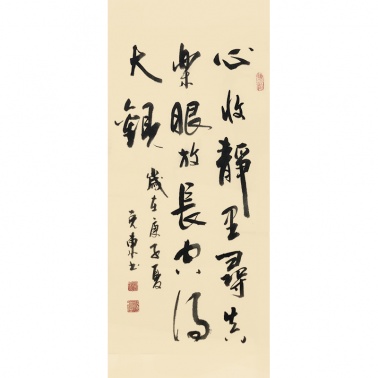 心收靜里尋真
樂眼放長空得
大觀
歲在庚子夏
東书